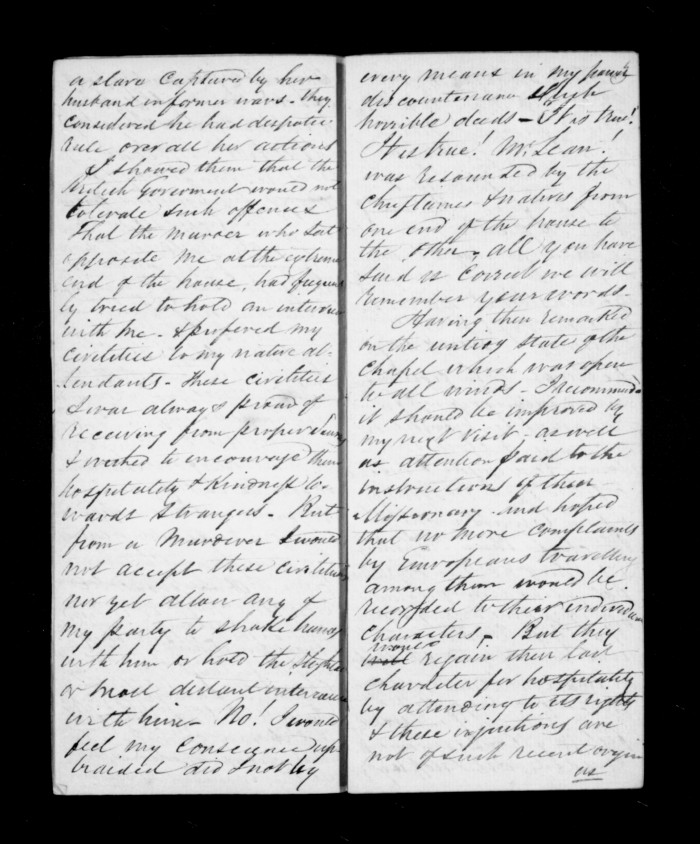 a slave captured by her
husband in former wars - they
considered he had despotic
rule over all her actions
I showed them that the
British Goverment would not
tolerate such offences
That the murder who sat
opposite me at the extreme
end of the house, had frequent
ly tried to hold an interview
with me - & prefered my
civilities to my native at-
tendants - these civilities
I was always proud of
receiving from proper
& wished to encourage them
hospitality & kindness to-
wards strangers - But
from a Murderer I would
not accept these civilities
nor yet allow any of
my party to shake hands
with him or hold the
or most distant intercourse
with him - No! I would
feel my conscience up
braided did I not by
every means in my power
discountenance such
horrible deeds - It is true!
It is true! Mr. Lean!
was resounded by the
chieftains & natives from
one end of the house to
the other, all you have
said is correct we will
remember your words -
Having then remarked
on the untidy state of the
Chapel which was open
to all winds - I recommended
it should be improved by
my next visit - as well
as attention paid to the
instructions of their
Missionary - and hoped
that no more complaints
by Europeans travelling
among them would be
recorded to their individual
characters - But they
would
regain their lost
character for hospitality
by attending to its rights
& these injuctions are
not of such recent origin
as